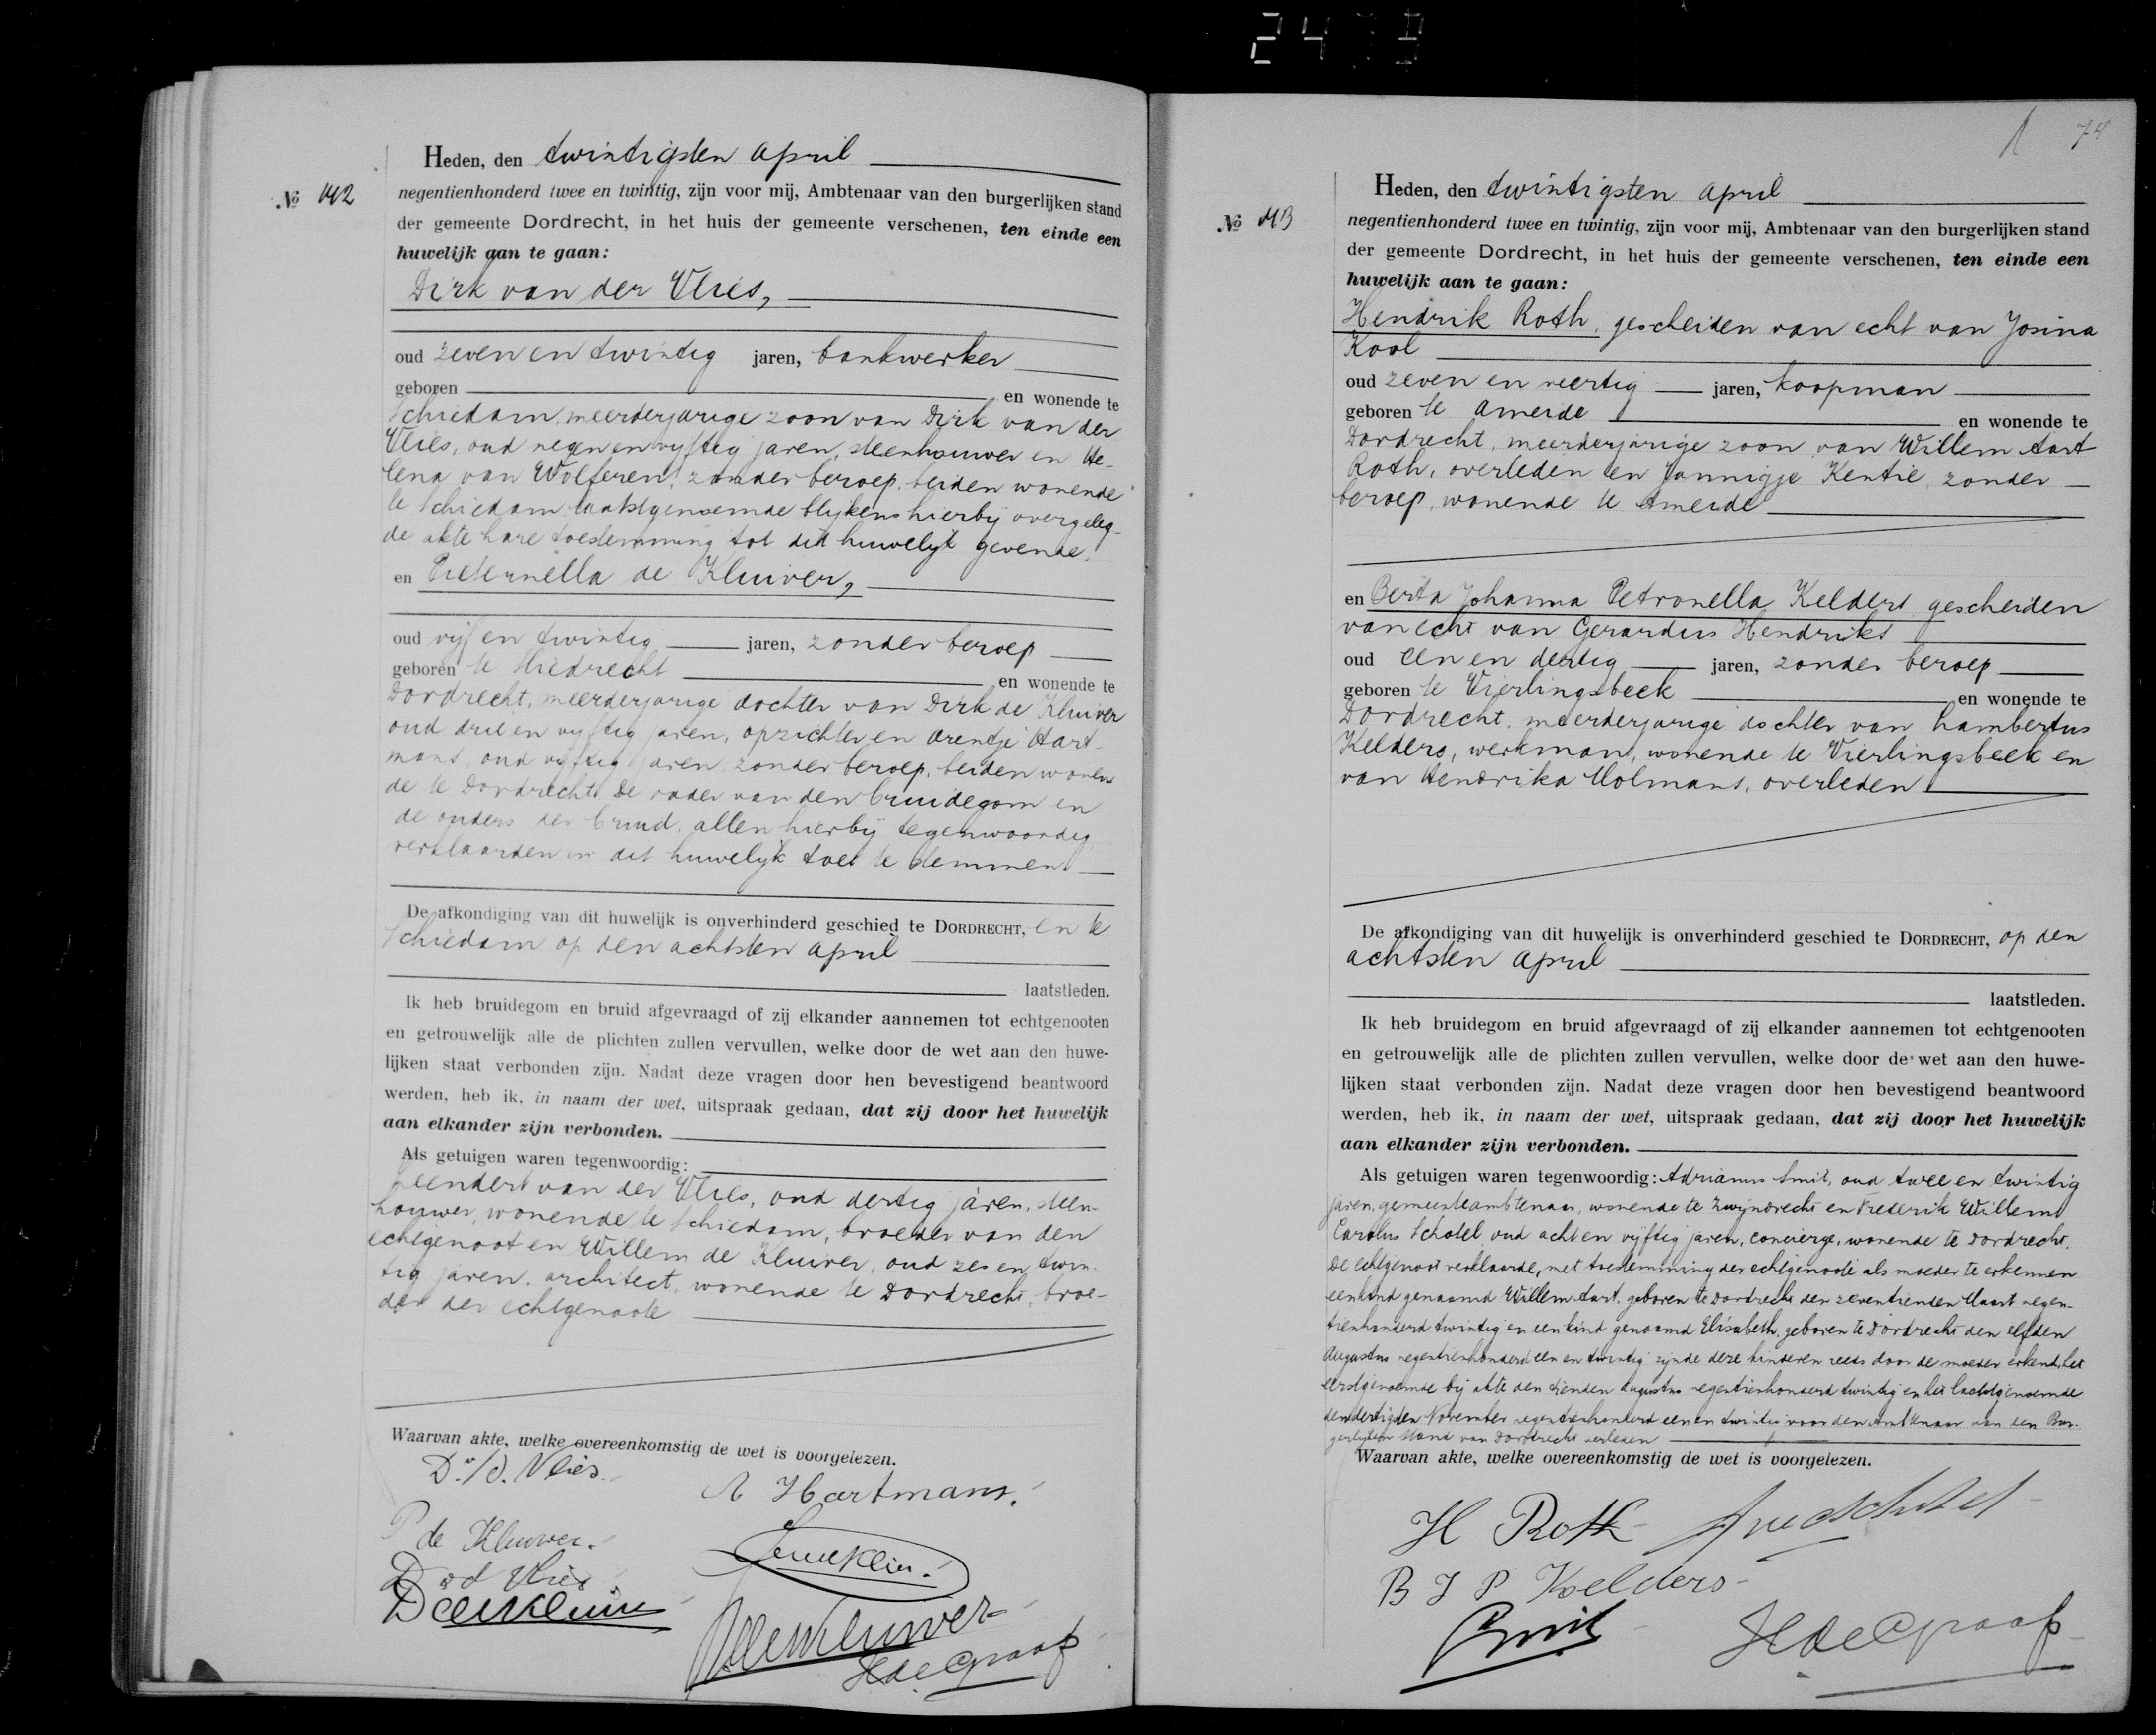 74
Heden, den twintigsten April
No 142
negentienhonderd twee en twintig, zijn voor mij, Ambtenaar van den burgerlijken stand
der gemeente Dordrecht, in het huis der gemeente verschenen, ten einde een
huwelijk aan te gaan:
Dirk van der Vlies,
oud zeven en twintig jaren, bankwerker
geboren en wonende te
Schiedam, meerderjarige zoon van Dirk van der
Vlies, oud negen en vyftig jaren, steenhouwer en He-
lena van Wolferen, zonder beroep, beiden wonende
te Schiedam laatstgenoemde blykens hierby overgeleg-
de akte hare toestemming tot dit huwelyk gevende.
en Pieternella de Kluiver,
oud vyf en twintig jaren, zonder beroep
geboren te en wonende te
Dordrecht, meerderjarige dochter van Dirk de Kluiver
oud drie en vyftig jaren, opzichter en Arentje Hart-
mans, oud vyftig jaren zonder beroep, beiden wonen
de te Dordrecht. De vader van den bruidegom en
de ouders der bruid, allen hierby tegenwoordig
verklaarden in dit huwelyk toe te stemmen
De afkondiging van dit huwelijk is onverhinderd geschied te DORDRECHT, en te
Schiedam op den achtsten April
laatstleden.
Ik heb bruidegom en bruid afgevraagd of zij elkander aannemen tot echtgenooten
en getrouwelijk alle de plichten zullen vervullen, welke door de wet aan den huwe-
lijken staat verbonden zijn. Nadat deze vragen door hen bevestigend beantwoord
werden, heb ik, in naam der wet, uitspraak gedaan, dat zij door het huwelijk
aan elkander zijn verbonden.
Als getuigen waren tegenwoordig:
Leendert van der Vlies, oud dertig jaren, steen-
houwer, wonende te Schiedam, broeder van den
echtgenoot en Willem de Kluiver, oud zes en twin-
tig jaren, architect, wonende te Dordrecht, broe-
der der echtgenoote
Waarvan akte, welke overeenkomstig de wet is voorgelezen.
D. v/d. Vlies.
A Hartmans.
P de Kluiver.
D v d Vlies
HdeGraaf
Heden, den twintigsten April
No 143
negentienhonderd twee en twintig, zijn voor mij, Ambtenaar van den burgerlijken stand
der gemeente Dordrecht, in het huis der gemeente verschenen, ten einde een
huwelijk aan te gaan:
Hendrik Roth, gescheiden van echt van Josina
Kool
oud zeven en veertig jaren, koopman
geboren te Ameide en wonende te
Dordrecht, meerderjarige zoon van Willem Aart
Roth, overleden en Jannigje Kentie, zonder
beroep, wonende te Ameide
en Berta Johanna Petronella Kelders gescheiden
van echt van Gerardus Hendriks
oud een en dertig jaren, zonder beroep
geboren te Vierlingsbeek en wonende te
Dordrecht, meerderjarige dochter van Lambertus
Kelders, werkman, wonende te Vierlingsbeek en
van Hendrika Holmans, overleden
De afkondiging van dit huwelijk is onverhinderd geschied te DORDRECHT, op den
achtsten April
laatstleden.
Ik heb bruidegom en bruid afgevraagd of zij elkander aannemen tot echtgenooten
en getrouwelijk alle de plichten zullen vervullen, welke door de wet aan den huwe-
lijken staat verbonden zijn. Nadat deze vragen door hen bevestigend beantwoord
werden, heb ik, in naam der wet, uitspraak gedaan, dat zij door het huwelijk
aan elkander zijn verbonden.
Als getuigen waren tegenwoordig: Adrianus Smit, oud twee en twintig
jaren, gemeenteambtenaar, wonende te Zwyndrecht en Frederik Willem
Carolus Schotel, oud acht en vyftig jaren, concierge, wonende te Dordrecht.
De echtgenoot verklaarde, met toestemming der echtgenoote als moeder te erkennen
een kind genaamd Willem Aart, geboren te Dordrecht den zeventienden Maart negen-
tienhonderd twintig en een kind genaamd Elisabeth, geboren te Dordrecht den elfden
Augustus negentienhonderd een en twintig zynde deze kinderen reeds door de moeder erkend, het
eerstgenoemde by akte den tienden Augustus negentienhonderd twintig en het laatstgenoemde
den dertigden November negentienhonderd een en twintig voor den Ambtenaar van den Bur-
gerlyken Stand van Dordrecht verleden
Waarvan akte, welke overeenkomstig de wet is voorgelezen.
H Roth
B J P Kelders
Smit
HdeGraaf